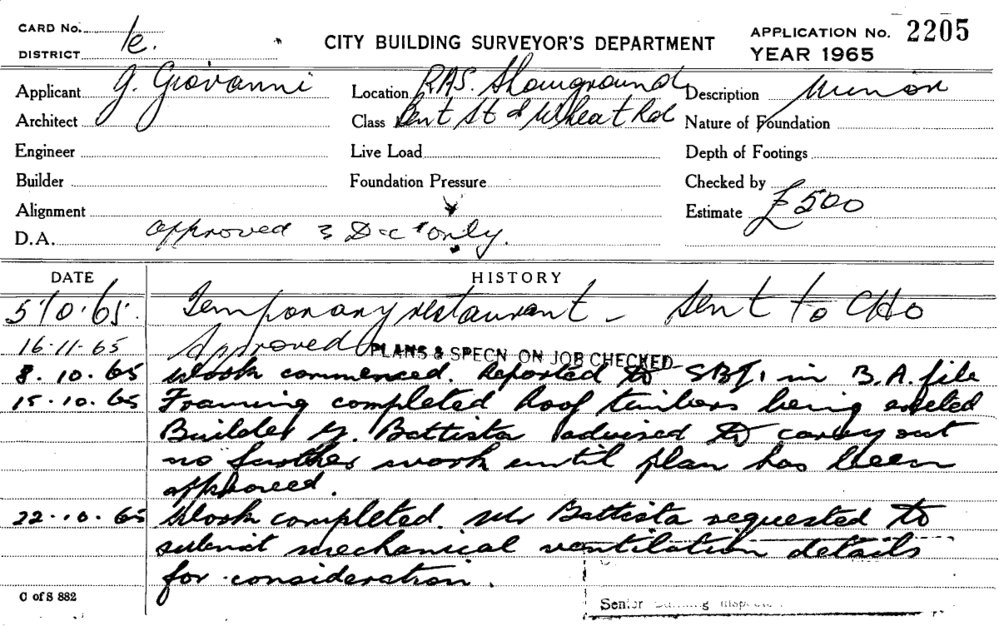 CARD No.
DISTRICT
CITY BUILDING SURVEYOR'S DEPARTMENT
APPLICATION No. 2205
YEAR 1965
Applicant G. Giovanni
Location RAS. Showground
Description Minor
Architect
Class Bent St & Wheat Rd
Nature of Foundation
Engineer
Live Load
Depth of Footings
Builder
Foundation Pressure
Checked by
Alignment
Estimate £500
D.A. approved only.
DATE HISTORY
5.10.65. Temporary restaurant - sent to CHO
16-11-65 Approved PLANS & SPECN ON JOB CHECKED
8.10.65 Work commenced. Reported to SBI, in B.A. file
15.10.65 Framing completed Roof timbers being erected
Builder G. Battista advised to carry out
no further work until plan has been
approved.
22.10.65 Work completed. Mr Battista requested to
submit mechanical ventilation details
for consideration.
C of S 882
Senior